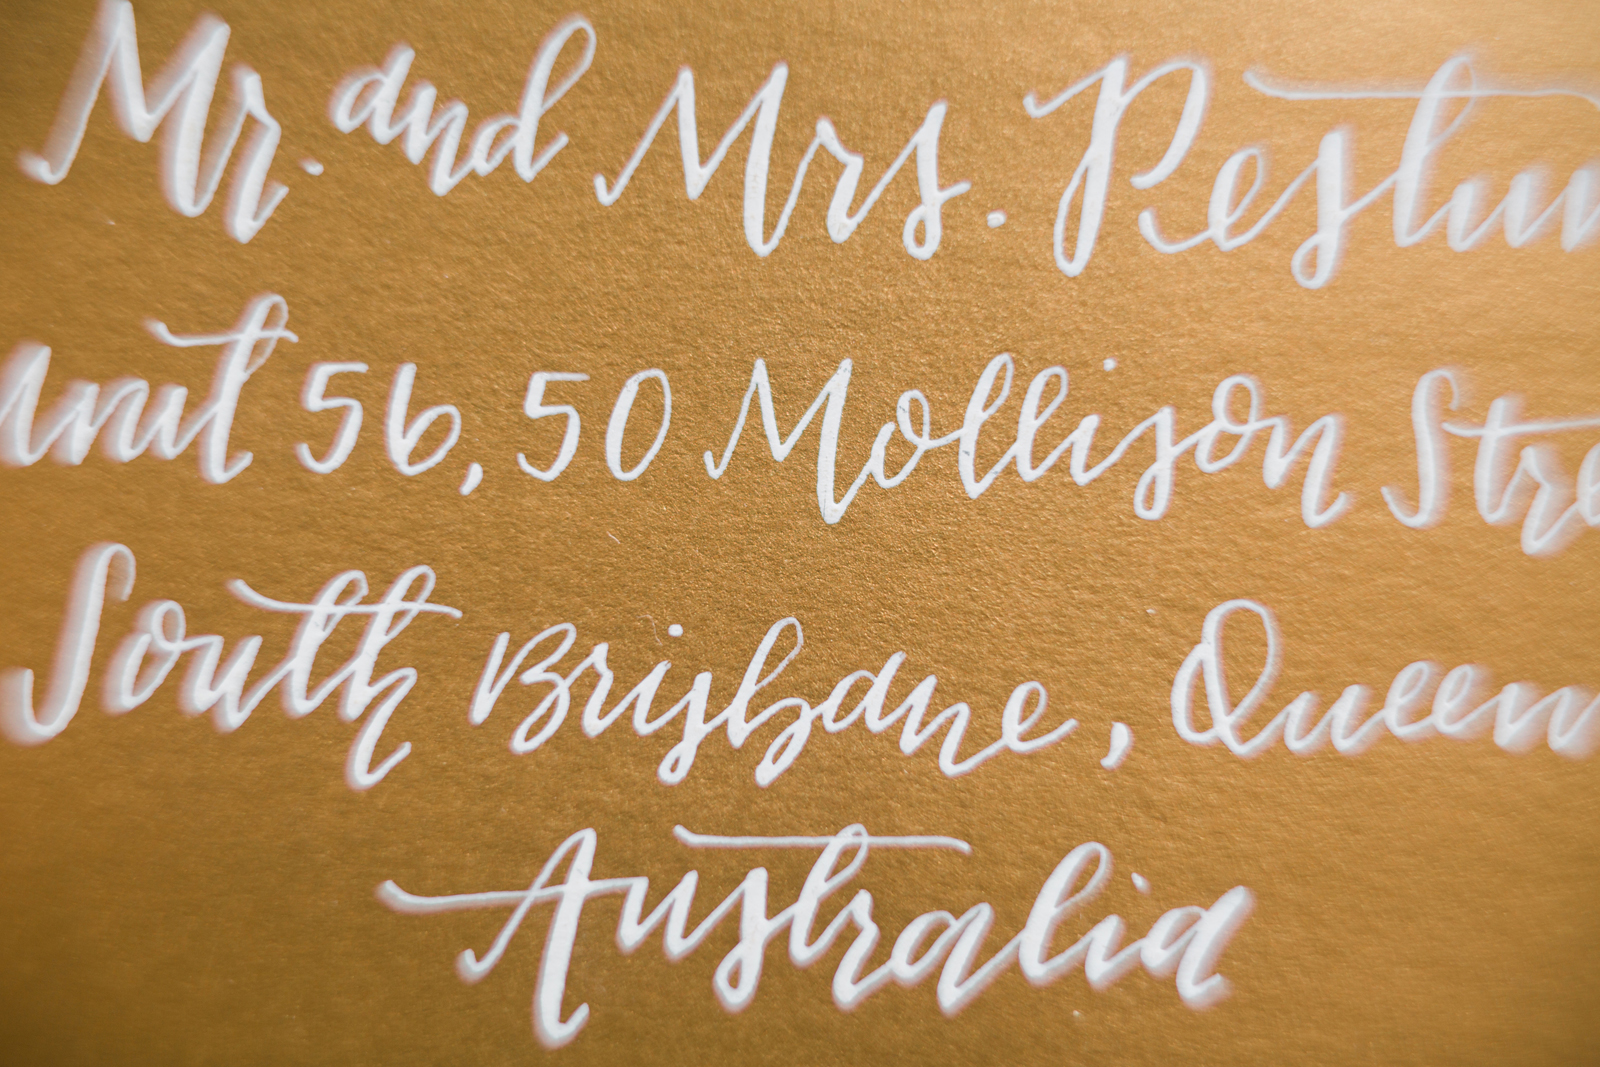 Mr. and Mrs.
unit 56, 50 Mollison Stre
South Brisbane, Queen
Australia